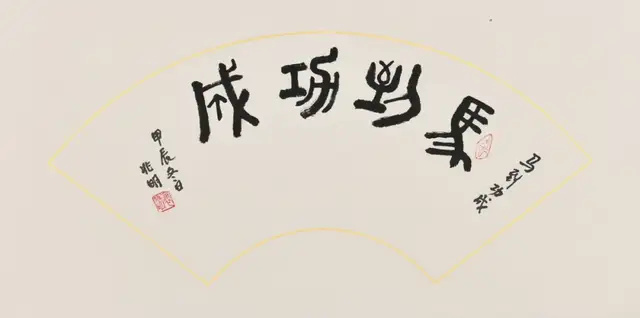 馬到功成
马到功成
甲辰冬日
兆明